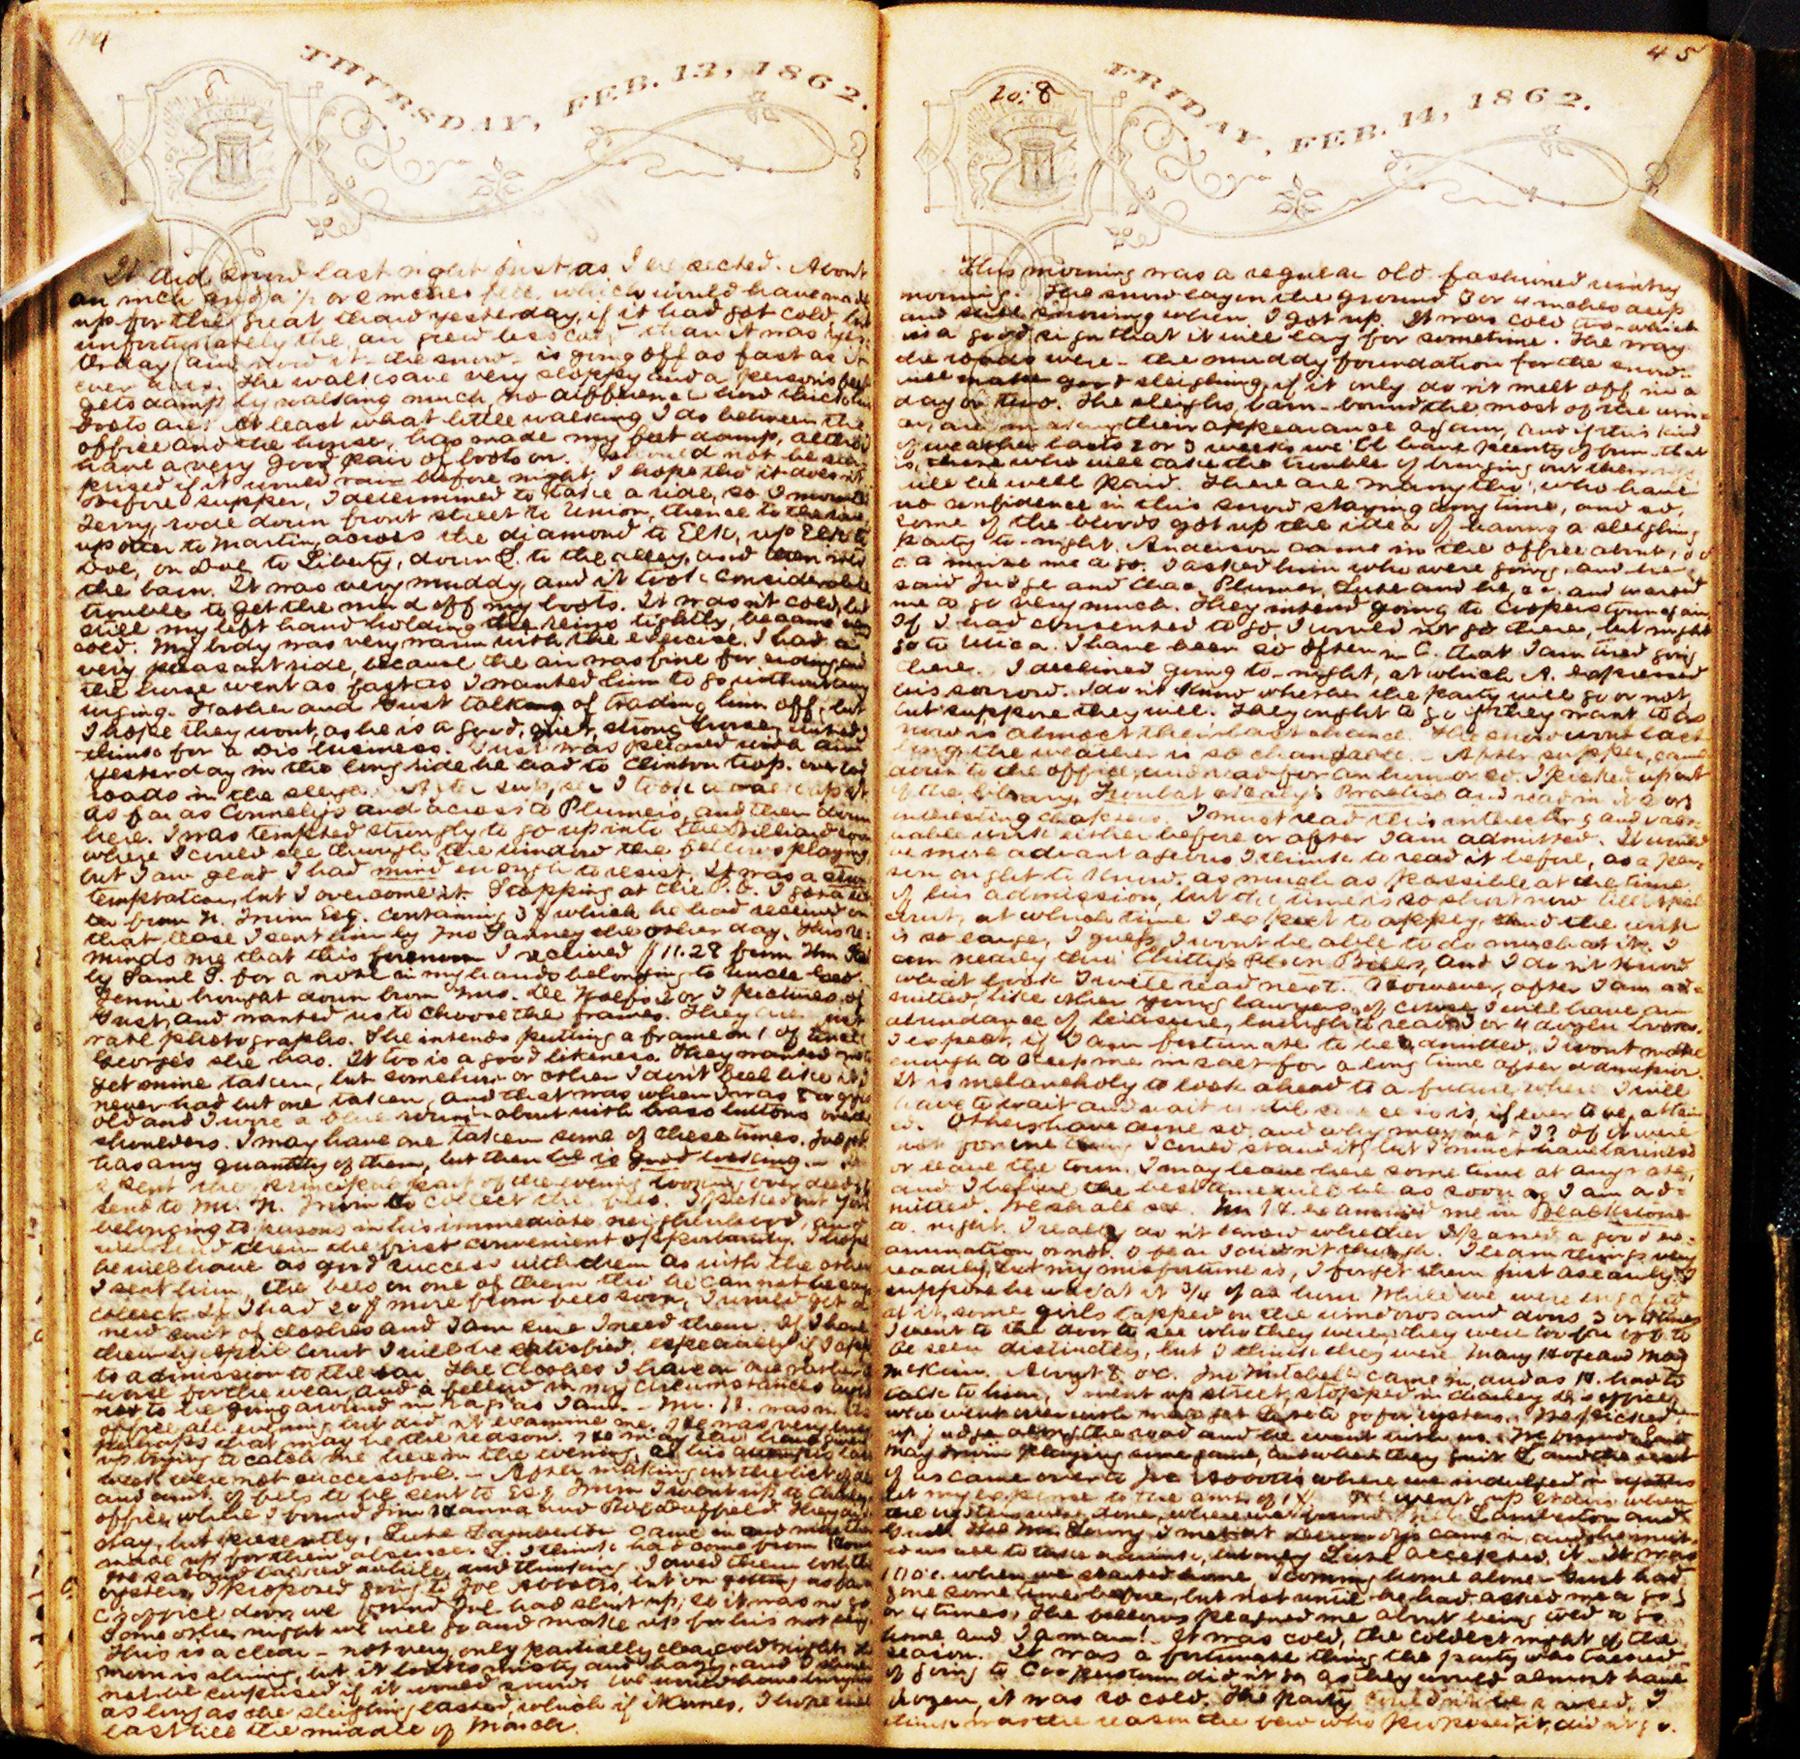 44
THURSDAY, FEB. 13, 1862.
It did snow last night just as I expected. About
an inch and a ½ or 2 inches fell, which would have made
up for the great thaw yesterday, if it had got cold, but
unfortunately the air grew less cold than it was yes-
terday, and now it - the snow - is going off as fast as it
ever does. The walks are very sloppy and a person's feet
gets damp by walking much, no difference how thick the
boots are. At least what little walking I do between the
office and the house, has made my feet damp, altho' I
have a very good pair of boots on. I should not be sur-
prised if it would rain before night, I hope tho' it doesn't.
Before supper, I determined to take a ride, so I mounted
Jerry, rode down front street to Union, thence to the
up otter to Martin, across the diamond to Elk, up Elk to
Doe, on Doe to Liberty, down L. to the alley, and then into
the barn. It was very muddy, and it took considerable
trouble to get the mud off my boots. It wasn't cold, but
still my left hand holding the reins tightly, became very
cold. My body was very warm with the exercise. I had a
very pleasant ride, because the air was fine for riding, and
the horse went as fast as I wanted him to go without any
urging. Father and Gust talking of trading him off, but
I hope they wont, as he is a good, quiet, strong horse, suited I
think for a Dis business. Gust was pleased with him
yesterday in the long ride he had to Clinton twp. over bad
roads in the sleigh. After supper I took a walk up st.
as far as Connely's and across to Plumer's, and then down
here. I was tempted strongly to go up into the Billiard room
where I could see through the window the fellows playing,
but I am glad I had mind enough to resist. It was a strong
temptation, but I overcome it. Stopping at the P.O. I got a let-
ter from N. Irwin Esq. containing 3$ which he had received on
that lease I sent him by Jno Fanney the other day. This re-
minds me that this forenoon I received $11.28 from Wm
by Saml P. for a note in my hands belonging to Uncle Geo.
Jennie brought down from Mrs. De Wolf's 2 or 3 pictures of
Gust, and wanted us to choose the frames. They are
rate photographs. She intends putting a frame on 1 of Uncle
George's she has. It too is a good likeness. They wanted me to
get mine taken, but somehow or other I don't feel like it. I
never had but one taken, and that was when I was 8 or 9 yrs
old and I wore a blue round-about with brass buttons over the
shoulders. I may have one taken some of these times. Judge
has any quantity of them, but then he is good looking. I
spent the principal part of the evening looking over deeds,
sent to Mr. N. Irwin to collect the fees. I picked out
belonging to persons in his immediate neighborhood, and
will send them the first convenient opportunity. I hope
he will have as good success with them as with the other
I sent him, the fees on one of them tho' he can not
collect. If I had 20$ more from fees soon, I would get a
new suit of clothes and I am sure I need them. If I have
them by April court I will be satisfied, especially if I apply
to admission to the bar. The clothes I have on are rather
worse for the wear, and a fellow in my circumstances ought
not to be going around in rags as I am. - Mr. H. was in the
office all evening but did n't examine me. He was very busy
perhaps that may be the reason. He may
up trying to catch me here in the evening, as his attempts last
week were not successful. - After making out the list of
and amt. of fees to be sent to Esq. Irwin I went up to Charley's
office, where I found Jim Hanna and
day, but presently, Luse Lamberton came in and
made up for their absence. L. I think had come from
We sat and talked awhile, and thinking I owed them
oysters, I proposed going to Joe Woods, but on getting as far
C's office door, we found Joe had shut up, so it was no go.
Some other night we will go and make up for his not being.
This is a clear - not very, only partially clear, cold night. The
moon is shining, but it looks misty and hazy, and I should
not be surprised if it would snow. We would have
as long as the sleighing lasted, which if it comes, I hope will
last till the middle of March.
45
20.8
FRIDAY, FEB. 14, 1862.
This morning was a regular old fashioned wintry
morning. The snow lay on the ground 3 or 4 inches deep
and still snowing when I got up. It was cold too - which
is a good sign that it will lay for sometime. The way
the roads were - the muddy foundation for the snow -
will make good sleighing, if it only do n't melt off in a
day or two. The sleighs, barn-bound the most of the win-
ter, are making their appearance again, and if this kind
of weather lasts 2 or 3 weeks we'll have plenty of fun, that
is, those who will take the trouble of bringing out their
will be well paid. There are many tho', who have
no confidence in this snow staying any time, and so,
some of the bloods got up the idea of having a sleighing
party to-night. Anderson came in the office about
to make me a go. I asked him who were going, and he
said Judge and Chas. Plumer, Luse and he, &c. and wanted
me to go very much. They intend going to Cooperstown again
If I had consented to go, I would not go there, but might
go to Utica. I have been so often in C. that I am tired going
there. I declined going to-night, at which A. expressed
his sorrow. I do n't know whether the party will go or not,
but suppose they will. They ought to go if they want to as
now is almost their last chance. The snow wont last
long, the weather is so changeable. - After supper, came
down to the office, and read for an hour or so. I picked up out
of the library, Troubat & Haly's Practice and read in it 2 or 3
interesting chapters. I must read this interesting and valu-
able work either before or after I am admitted. It would
be more advantageous I think to read it before, as a per-
son ought to know as much as possible at the time
of his admission, but the time is so short now till April
court, at which time I expect to apply, and the work
is so large, I guess I wont be able to do much at it. I
am nearly thro' Chitty's Plain Bills, and I do n't know
what book I will read next. However, after I am ad-
mitted, like other young lawyers, of course I will have an
abundance of leisure, enough to read 3 or 4 dozen books.
I expect, if I am fortunate to be admitted, I wont make
enough to keep me in salt for a long time after admission.
It is melancholy to look ahead to a future where I will
have to wait and wait until success is, if ever to be, attain-
ed. Others have done so, and why may not I? If it were
not for one thing I could stand it, but I must have business
or leave the town. I may leave here some time at any rate,
and I believe the best time will be as soon as I am ad-
mitted. We shall see. Mr. H. examined me in Blackstone
to-night. I really do n't know whether I passed a good ex-
amination or not. I fear I did n't though. I learn things very
readily, but my misfortune is, I forget them just as easily. I
suppose he was at it 3/4 of an hour. While we were engaged
at it, some girls tapped on the windows and doors 3 or 4 times
I went to the door to see who they were, they were too far off to
be seen distinctly, but I think they were Mary Hoge and Mag
McKim. About 8 o'c. Jno Mitchell came in, and as H. had to
talk to him, I went up street, stopped in Charley D's office,
who went over with me to get Luse to go for oysters. We picked
up Judge along the road and he went with us. We found L and
May Irwin playing some game, and when they quit L and the rest
of us came over to Joe Woods where we indulged in oysters
at my expense to the amt. of 1$. We went up stairs when
the oysters were done, where we found Lamberton and
Gust. The Mr. Lowry I met at came in, and he invit-
ed us all to take a drink, but only Luse accepted it. It was
10 o'c. when we started home. I coming home alone - Gust had
gone some time before, but not until he had asked me to go 3
or 4 times. The fellows plagued me about being told to go
home and I a man! - It was cold, the coldest night of the
season. It was a fortunate thing the party who talked
of going to Cooperstown did n't go, as they would almost have
frozen, it was so cold. The party couldn't be raised, I
think was the reason the few who proposed it, did n't go.